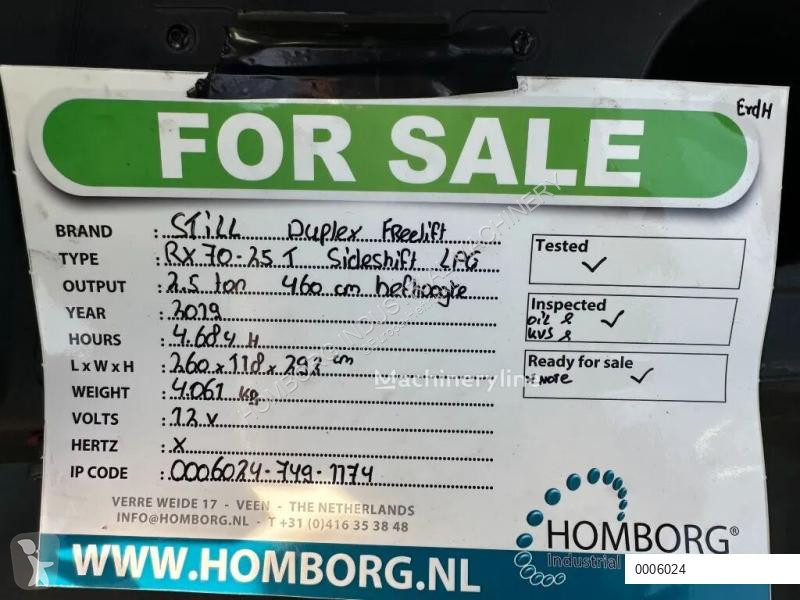 ErdH
FOR SALE
BRAND : STILL Duplex Freelift
TYPE : RX70-25 T Sideshift LPG
OUTPUT : 2.5 ton 460 cm hefhoogte
YEAR : 2019
HOURS : 4.684 H
L x W x H : 260 x 118 x 292 cm
WEIGHT : 4.061 kg
VOLTS : 12 v
HERTZ : X
IP CODE : 0006024-749-1174
Tested
✓
Inspected
OIL & ✓
KVS &
Ready for sale
NOTE ✓
VERRE WEIDE 17 - VEEN - THE NETHERLANDS
INFO@HOMBORG.NL - T +31 (0)416 35 38 48
HOMBORG®
Industrial
WWW.HOMBORG.NL
0006024
HOMBORG INDUSTRIAL MACHINERY
Machineryline